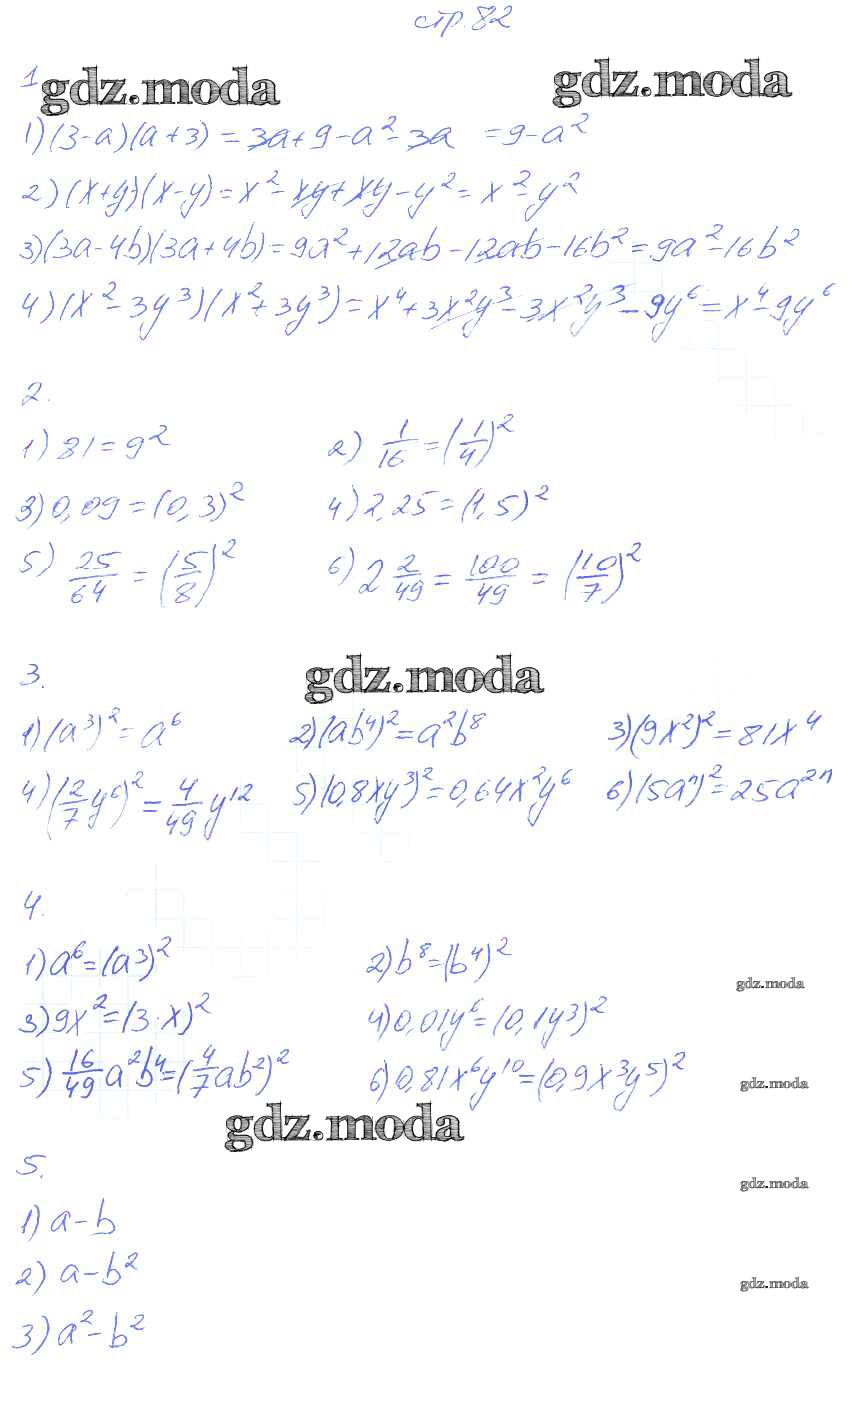 стр. 82
1
gdz.moda gdz.moda
1) (3-a)(a+3) = 3a+9-a²-3a = 9-a²
2) (x+y)(x-y) = x²-xy+xy-y² = x²-y²
3) (3a-4b)(3a+4b) = 9a²+12ab-12ab-16b² = 9a²-16b²
4) (x²-3y³)(x²+3y³) = x⁴+3x²y³-3x²y³-9y⁶ = x⁴-9y⁶
2.
1) 81 = 9² 2) 1/16 = (1/4)²
3) 0,09 = (0,3)² 4) 2,25 = (1,5)²
5) 25/64 = (5/8)² 6) 2 2/49 = 100/49 = (10/7)²
3.
gdz.moda
1) (a³)² = a⁶ 2) (ab⁴)² = a²b⁸ 3) (9x²)² = 81x⁴
4) (2/7 y⁶)² = 4/49 y¹² 5) (0,8xy³)² = 0,64x²y⁶ 6) (5aⁿ)² = 25a²ⁿ
4.
1) a⁶ = (a³)² 2) b⁸ = (b⁴)²
gdz.moda
3) 9x² = (3·x)² 4) 0,01y⁶ = (0,1y³)²
5) 16/49 a²b⁴ = (4/7 ab²)² 6) 0,81x⁶y¹⁰ = (0,9x³y⁵)²
gdz.moda
gdz.moda
5.
gdz.moda
1) a-b
2) a-b²
gdz.moda
3) a²-b²